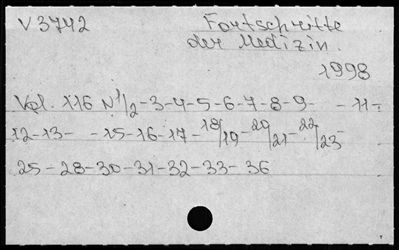 V 3742
Fortschritte
der Medizin.
1998
Vol. 116 N 1/2-3-4-5-6-7-8-9- -11-
12-13- -15-16-17-18/19-20/21-22/23-
25-28-30-31-32-33-36